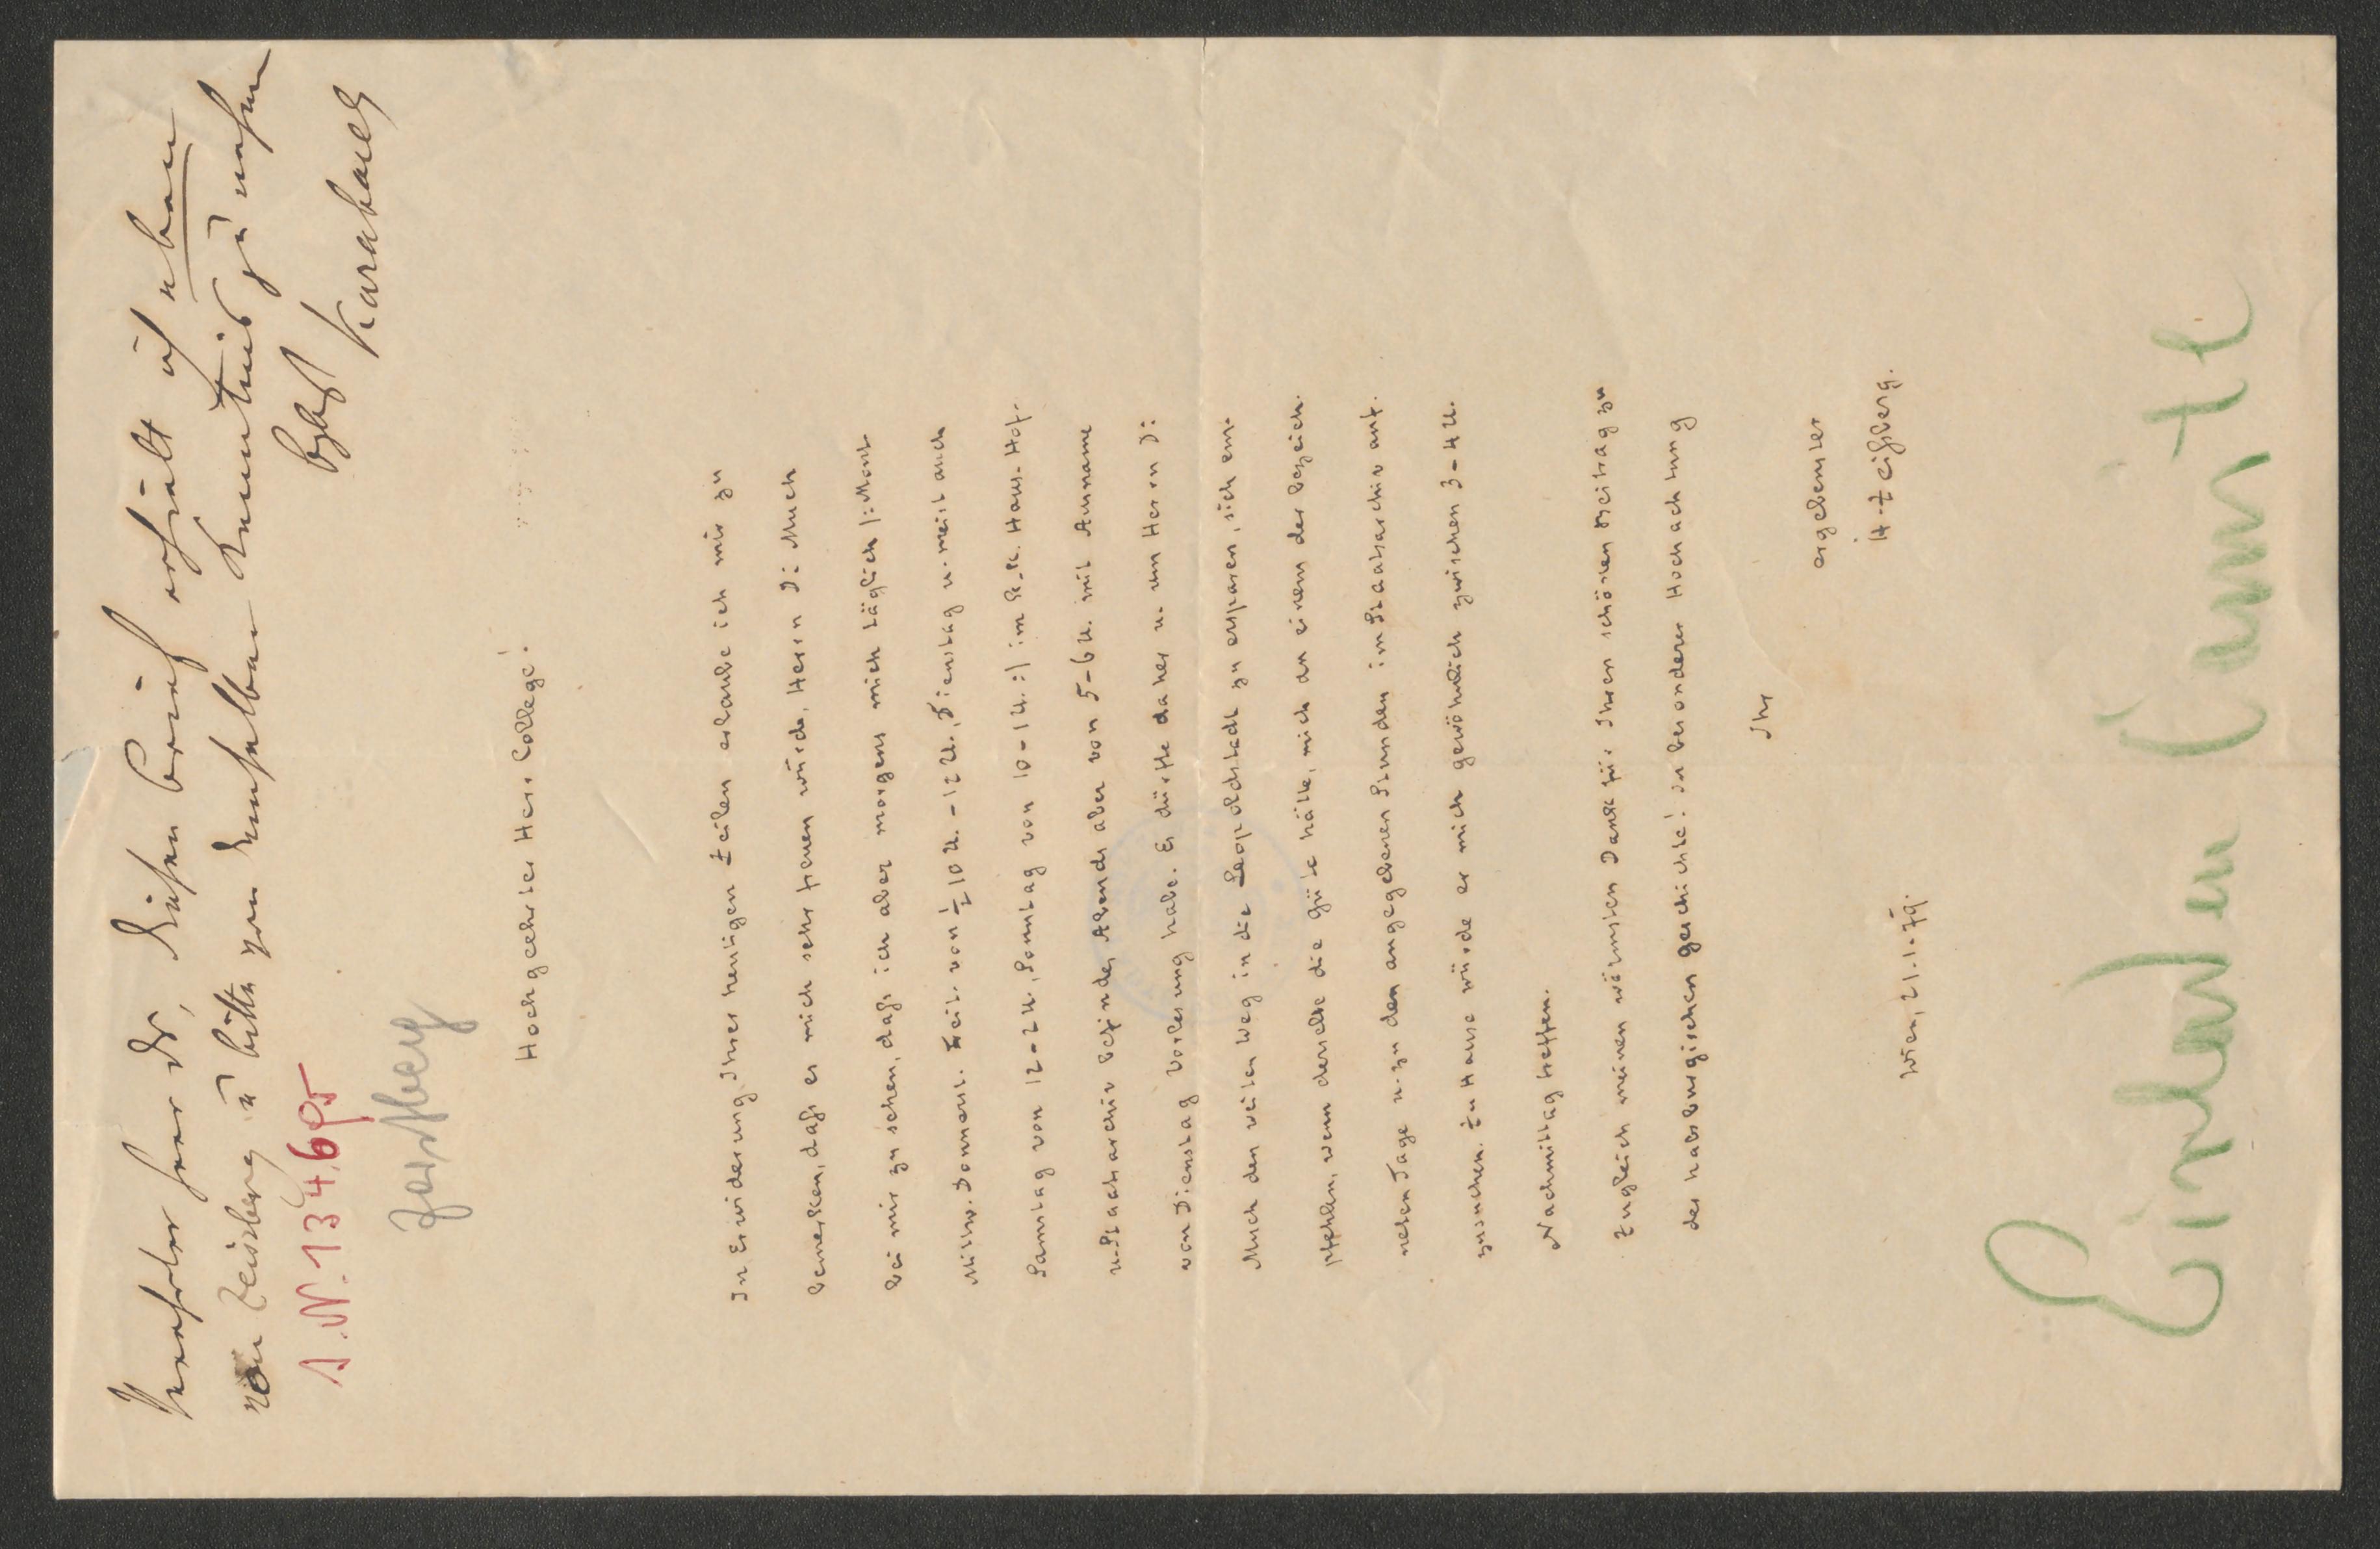 Verehrter Herr Dr, diesen Brief erhielt ich eben
von Zeissberg u bitte von demselben Kenntnis zu nehmen
Karabacek
I.N. 134.695
Zeissberg
Hochgeehrter Herr College!
In Erwiderung Ihrer heutigen Zeilen erlaube ich mir zu
bemerken, dass es mich sehr freuen würde, Herrn Dr. Much
bei mir zu sehen, dass ich aber morgens mich täglich |: Mont.
Mittw. Donnerst. Freit. von ½10 U. - 12 U., Dienstag u. meist auch
Samstag von 12-2 U., Sonntag von 10-1 U. :| im k. k. Haus- Hof-
u. Staatsarchiv befinde, Abends aber von 5-6 U. mit Ausname
von Dienstag Vorlesung habe. Es dürfte daher u. um Herrn Dr.
Much den weiten Weg in die Leopoldstadt zu ersparen, sich em-
pfehlen, wenn derselbe die Güte hätte, mich an einem der bezeich-
neten Tage u. zu den angegebenen Stunden im Staatsarchiv auf-
zusuchen. Zu Hause würde er mich gewöhnlich zwischen 3-4 U.
Nachmittag treffen.
Zugleich meinen wärmsten Dank für Ihren schönen Beitrag zu
der habsburgischen Geschichte! In besonderer Hochachtung
Ihr
ergebenster
H. Zeißberg.
Wien, 21.1.79.